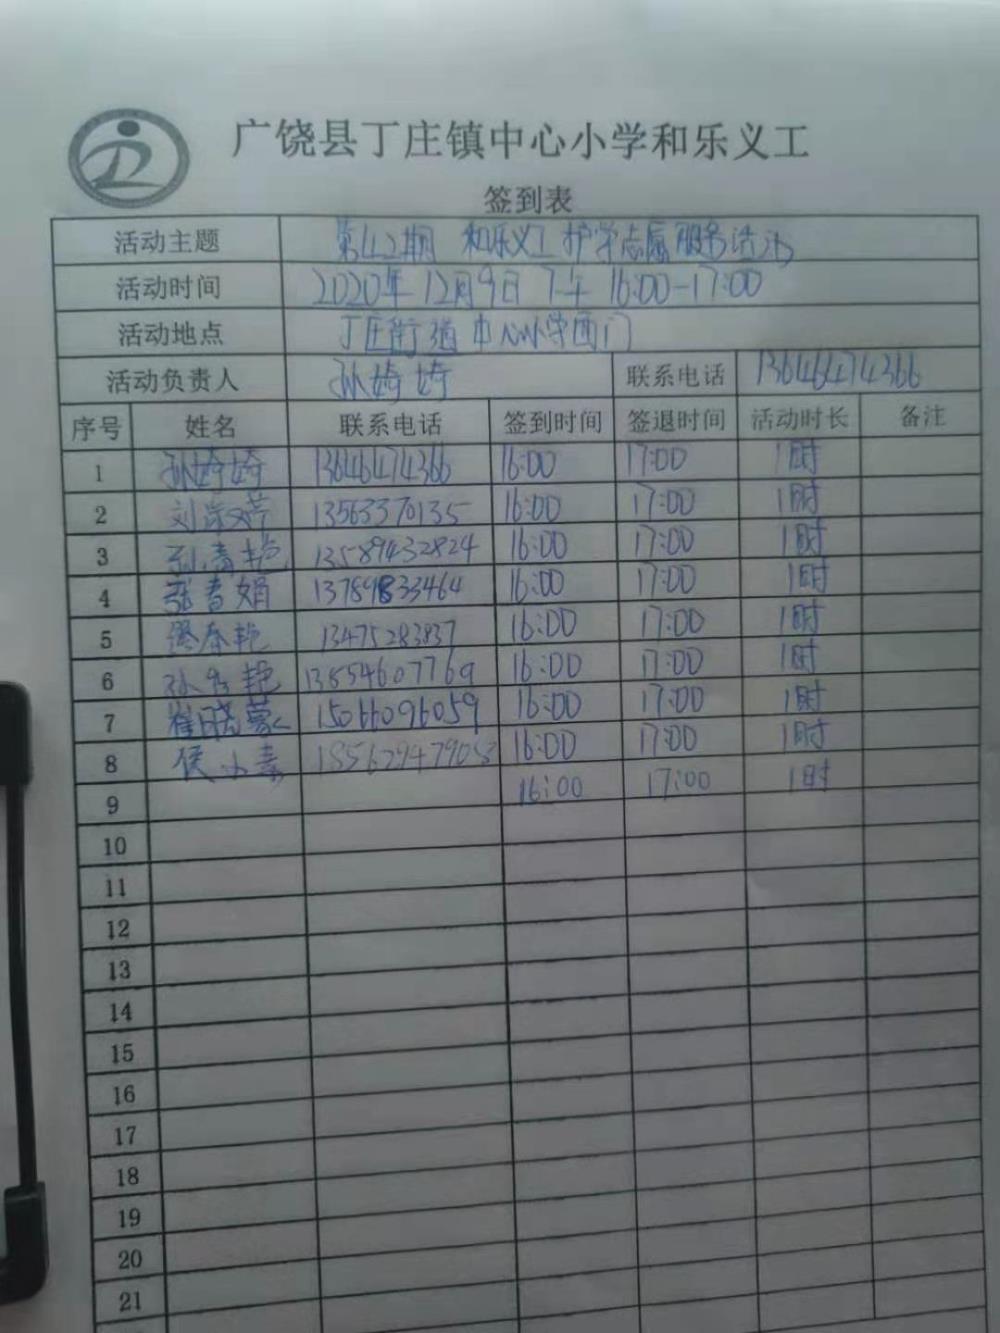 广饶县丁庄镇中心小学和乐义工
签到表
活动主题 第42期 和乐义工护学志愿服务活动
活动时间 2020年12月9日 下午 16:00-17:00
活动地点 丁庄街道中心小学西门
活动负责人 孙婷婷 联系电话 13646474366
序号 姓名 联系电话 签到时间 签退时间 活动时长 备注
1 孙婷婷 13646474366 16:00 17:00 1时
2 13563370135 16:00 17:00 1时
3 13589432824 16:00 17:00 1时
4 张春娟 13789833464 16:00 17:00 1时
5 13475283837 16:00 17:00 1时
6 13554607769 16:00 17:00 1时
7 崔晓 15066096059 16:00 17:00 1时
8 侯小素 18562947905 16:00 17:00 1时
9 16:00 17:00 1时
10
11
12
13
14
15
16
17
18
19
20
21